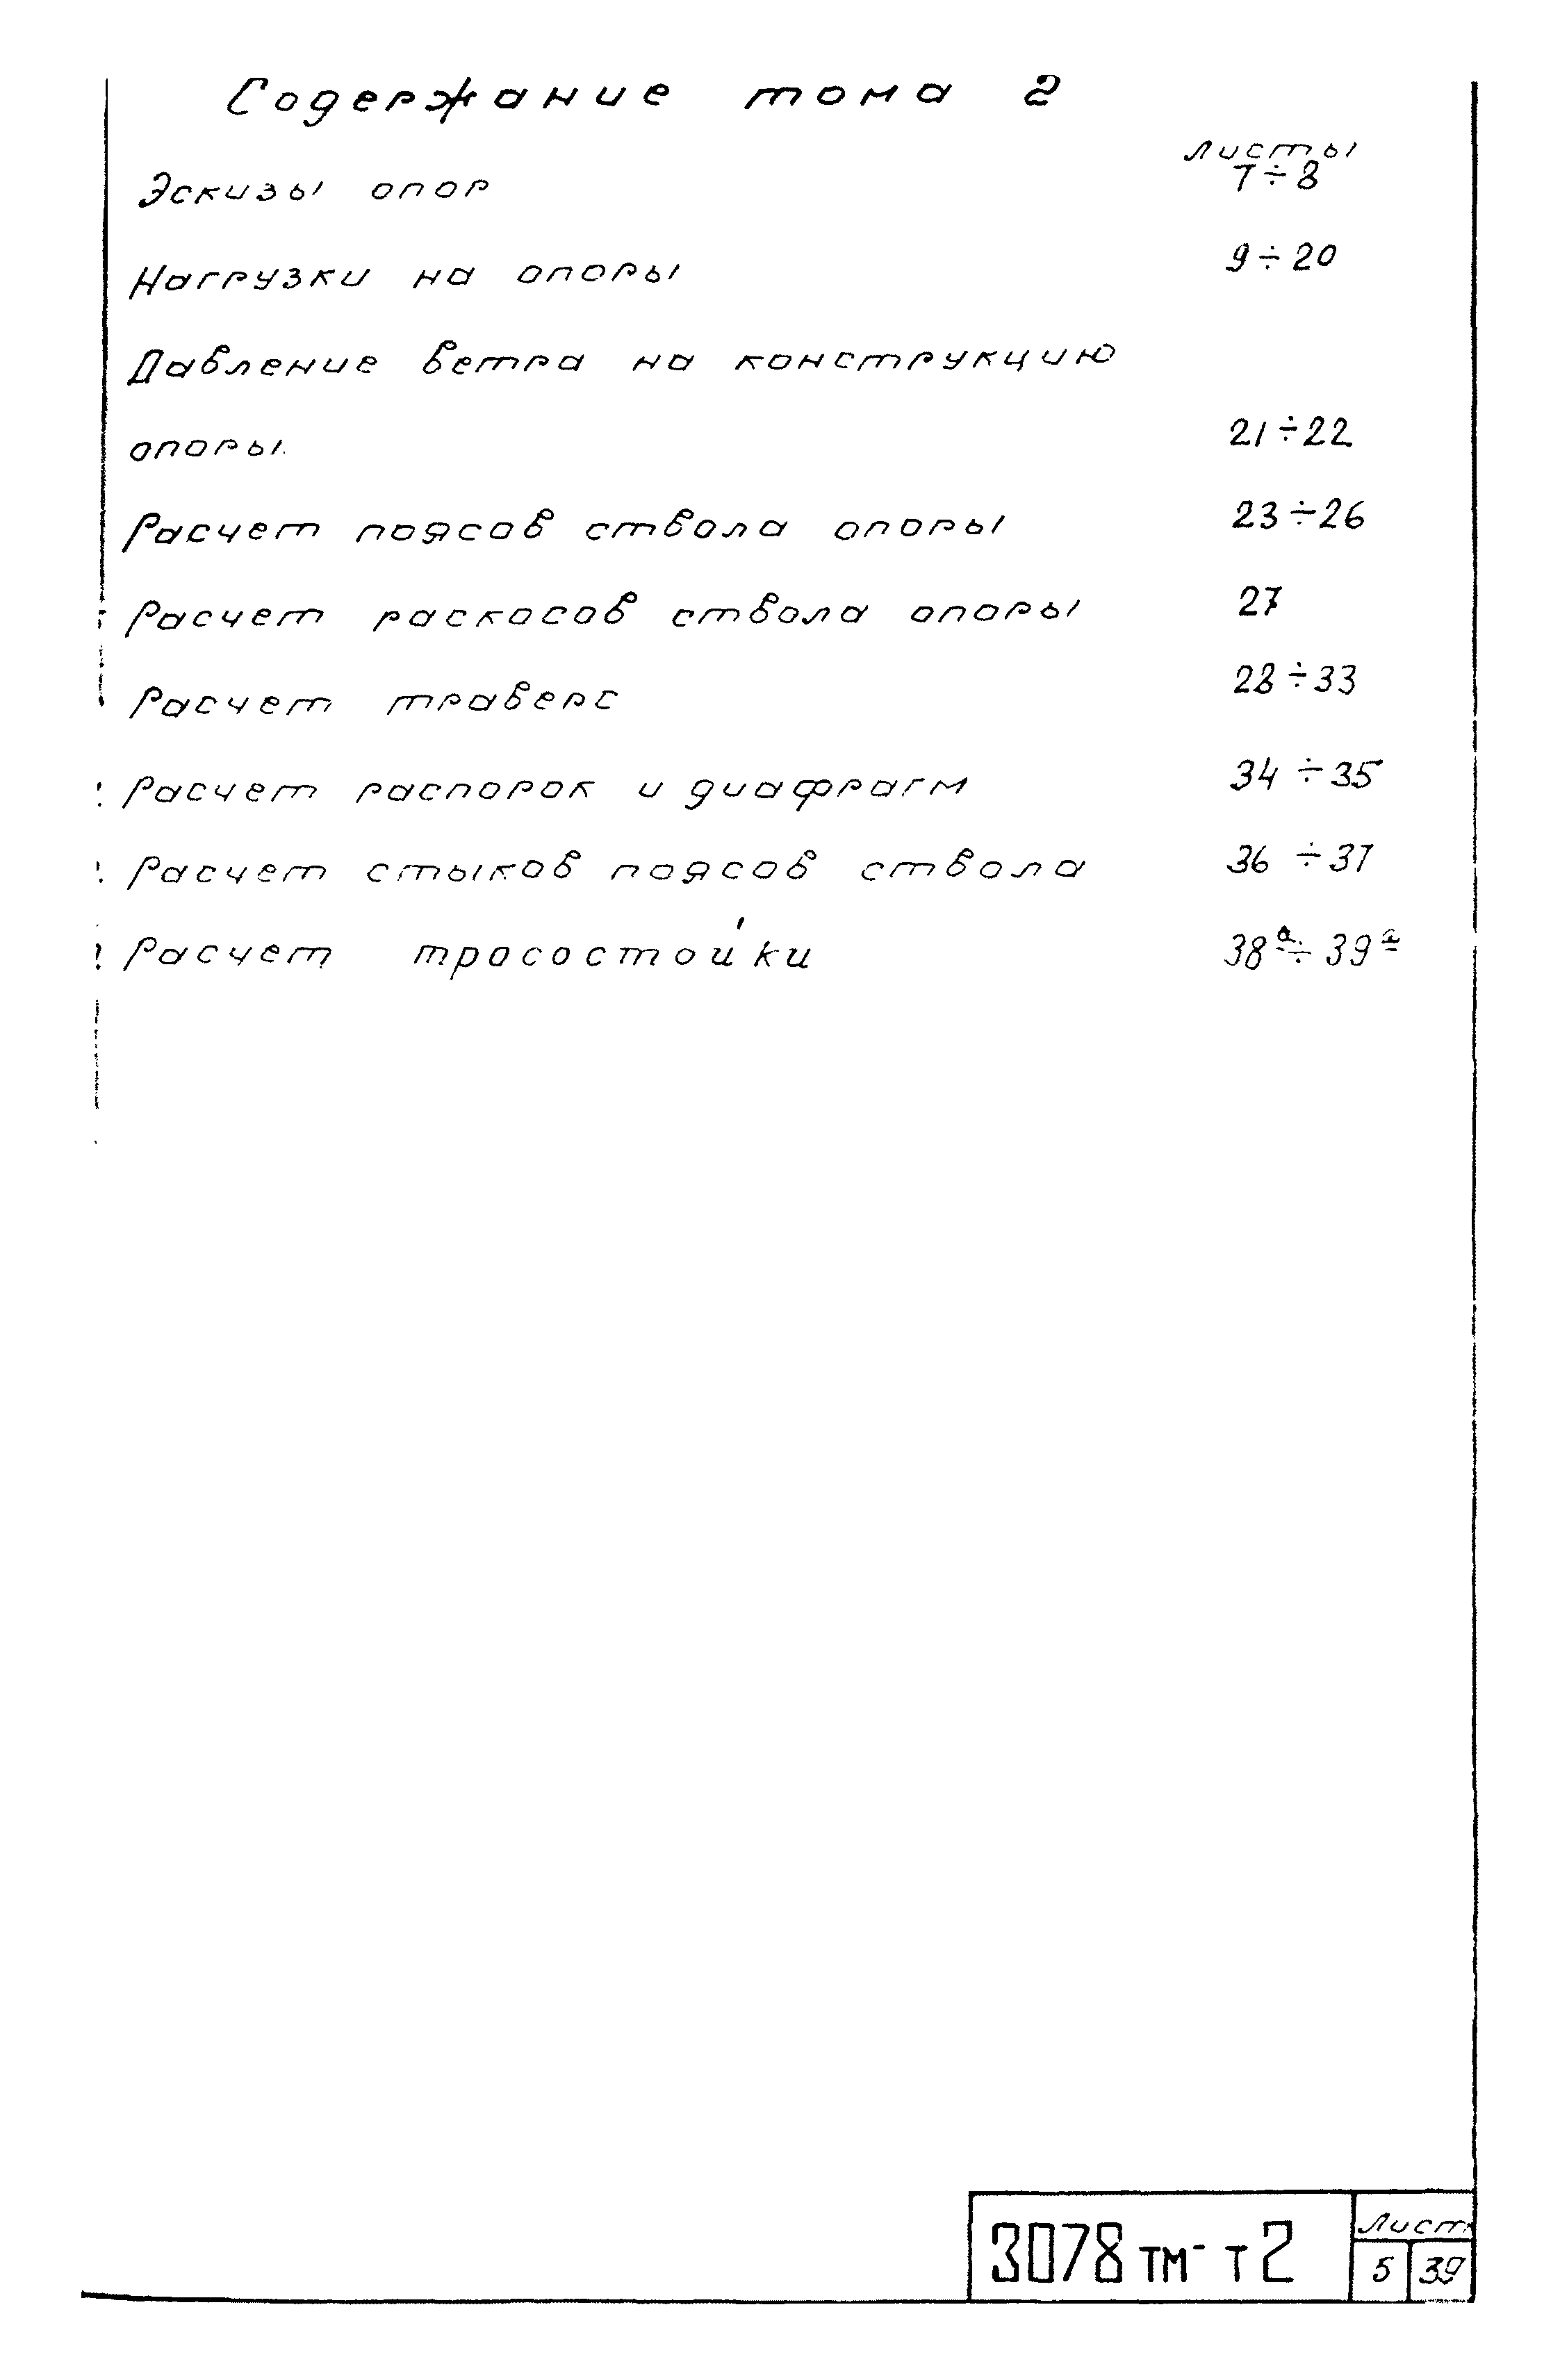 Содержание тома 2
листы
Эскизы опор 7÷8
Нагрузки на опоры 9÷20
Давление ветра на конструкцию
опоры 21÷22
Расчет поясов ствола опоры 23÷26
Расчет раскосов ствола опоры 27
Расчет траверс 28÷33
Расчет распорок и диафрагм 34÷35
Расчет стыков поясов ствола 36÷37
Расчет тросостойки 38а÷39а
3078тм-т2
Лист
5 39